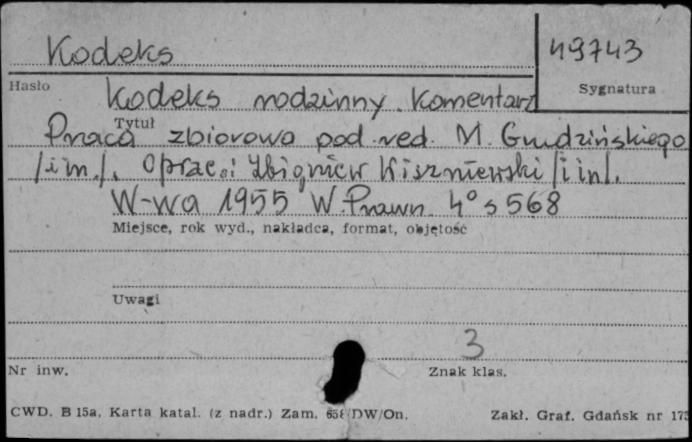 Kodeks
49743
Hasło
Sygnatura
Kodeks rodzinny. Komentarz
Tytuł
Praca zbiorowa pod red. M. Grudzińskiego
/i in./. Oprac.: Zbigniew Wiszniewski /i in/.
W-wa 1955 W. Prawn. 4° s 568
Miejsce, rok wyd., nakładca, format, objętość
Uwagi
3
Nr inw.
Znak klas.
CWD. B 15a. Karta katal. (z nadr.) Zam. DW/On.
Zakł. Graf. Gdańsk nr 173